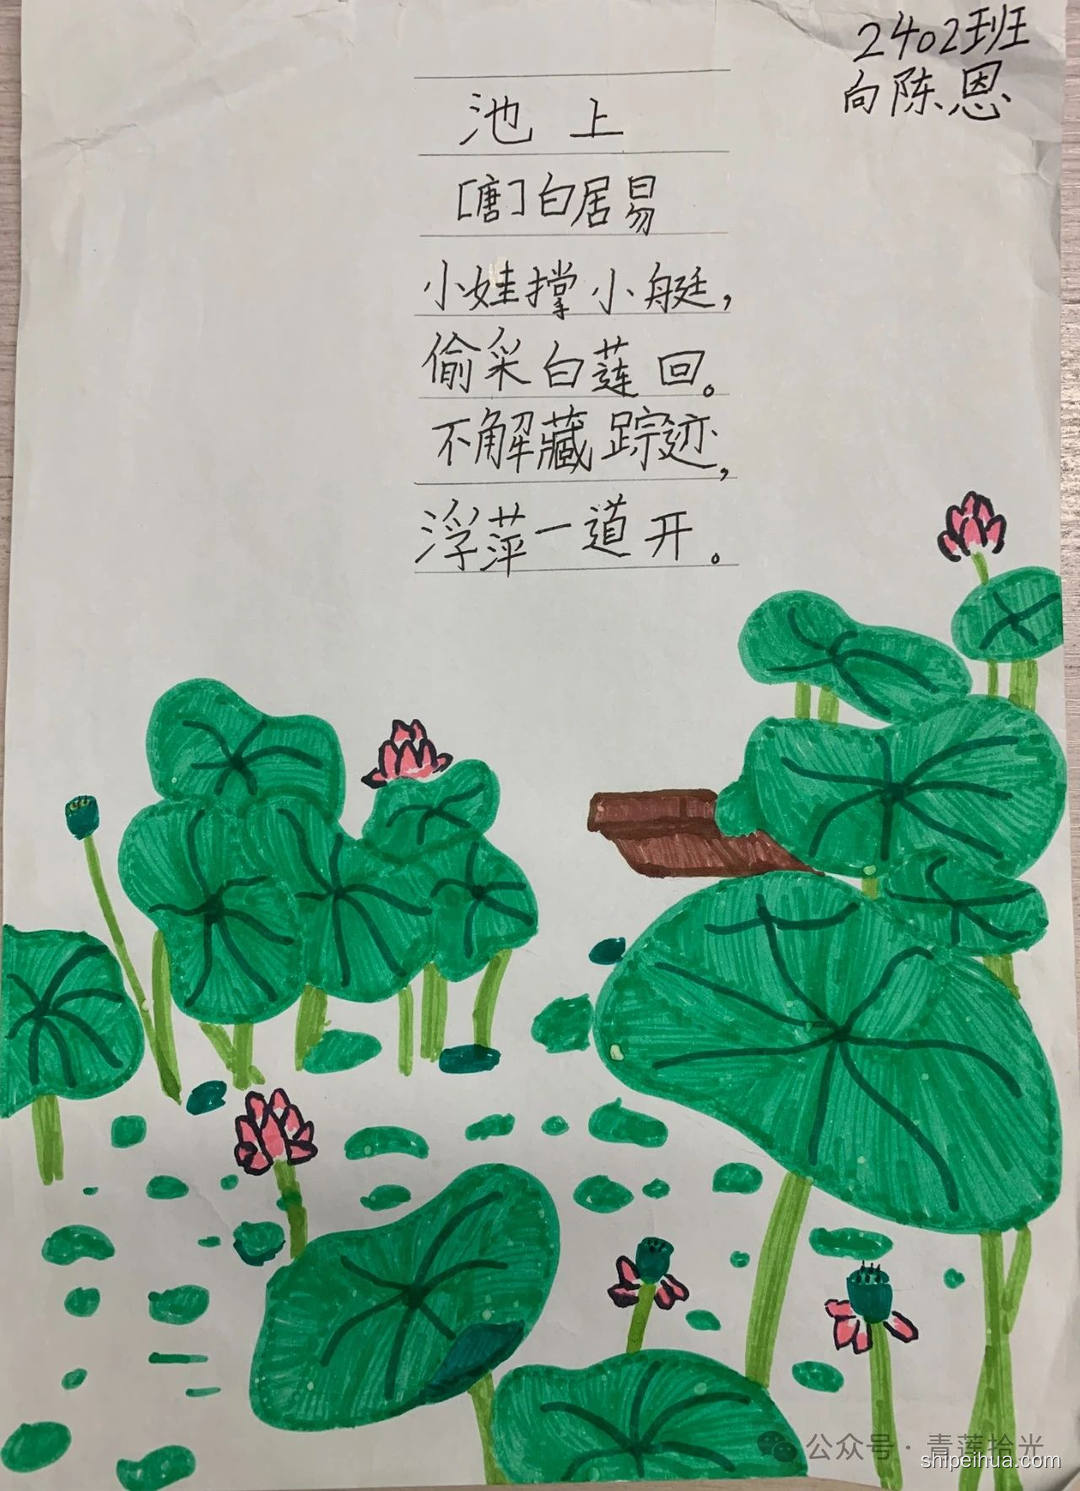 2402班
向陈恩
池上
[唐]白居易
小娃撑小艇,
偷采白莲回。
不解藏踪迹,
浮萍一道开。
公众号·青莲拾光
shipeihua.com